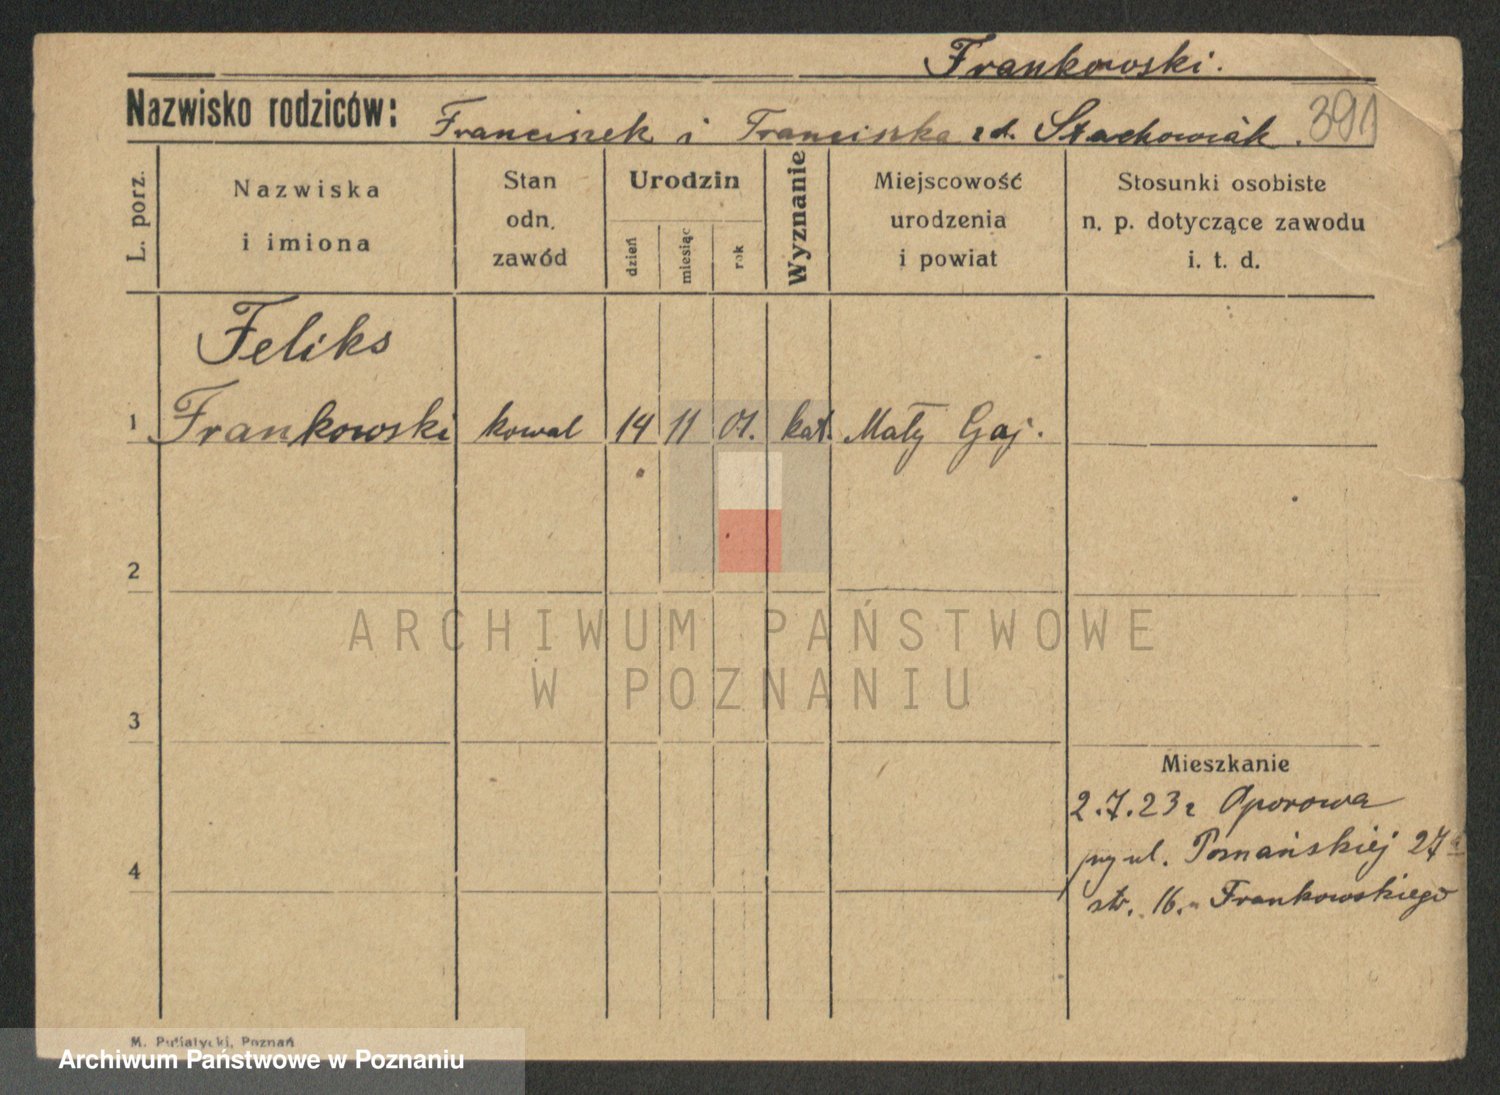 Frankowski.
Nazwisko rodziców: Franciszek i Franciszka zd. Stachowiak. 391
L. porz.
Nazwiska
i imiona
Stan
odn.
zawód
Urodzin
dzień
miesiąc
rok
Wyznanie
Miejscowość
urodzenia
i powiat
Stosunki osobiste
n. p. dotyczące zawodu
i. t. d.
Feliks
1 Frankowski kowal 14 11 01. kat. Mały Gaj.
2
3
4
ARCHIWUM PAŃSTWOWE
W POZNANIU
Mieszkanie
2.7.23 z Oporowa
ul. Poznańskiej 27
str. 16. Frankowskiego
M. Putiatycki, Poznań
Archiwum Państwowe w Poznaniu